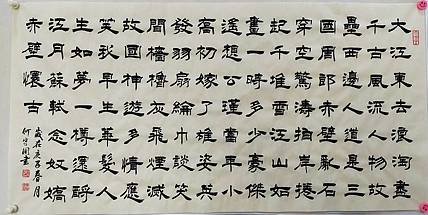 大江東去浪淘盡
千古風流人物故
壘西邊人道是三
國周郎赤壁亂石
穿空驚濤拍岸捲
起千堆雪江山如
畫一時多少豪傑
遙想公瑾當年小
喬初嫁了雄姿英
發羽扇綸巾談笑
間檣櫓灰飛煙滅
故國神遊多情應
笑我早生華髮人
生如夢一樽還酹
江月蘇軾念奴嬌
赤壁懷古
歲在庚子春月